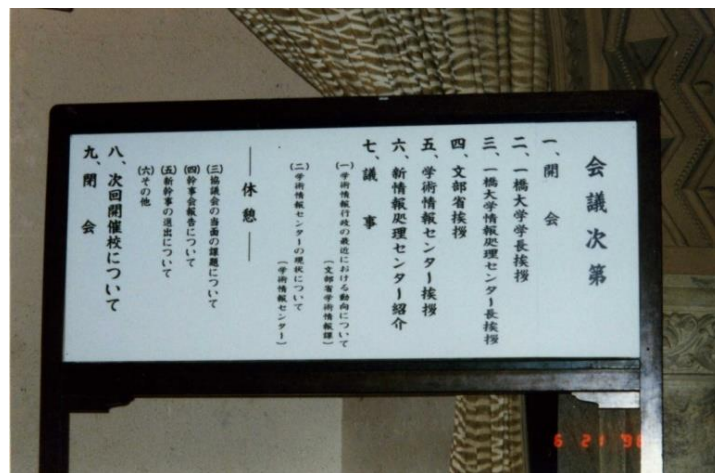 会議次第
一、開会
二、一橋大学学長挨拶
三、一橋大学情報処理センター長挨拶
四、文部省挨拶
五、学術情報センター挨拶
六、新情報処理センター紹介
七、議事
(一)学術情報行政の最近における動向について
(文部省学術情報課)
(二)学術情報センターの現状について
(学術情報センター)
──休憩──
(三)協議会の当面の課題について
(四)幹事会報告について
(五)新幹事の選出について
(六)その他
八、次回開催校について
九、閉会
6 21